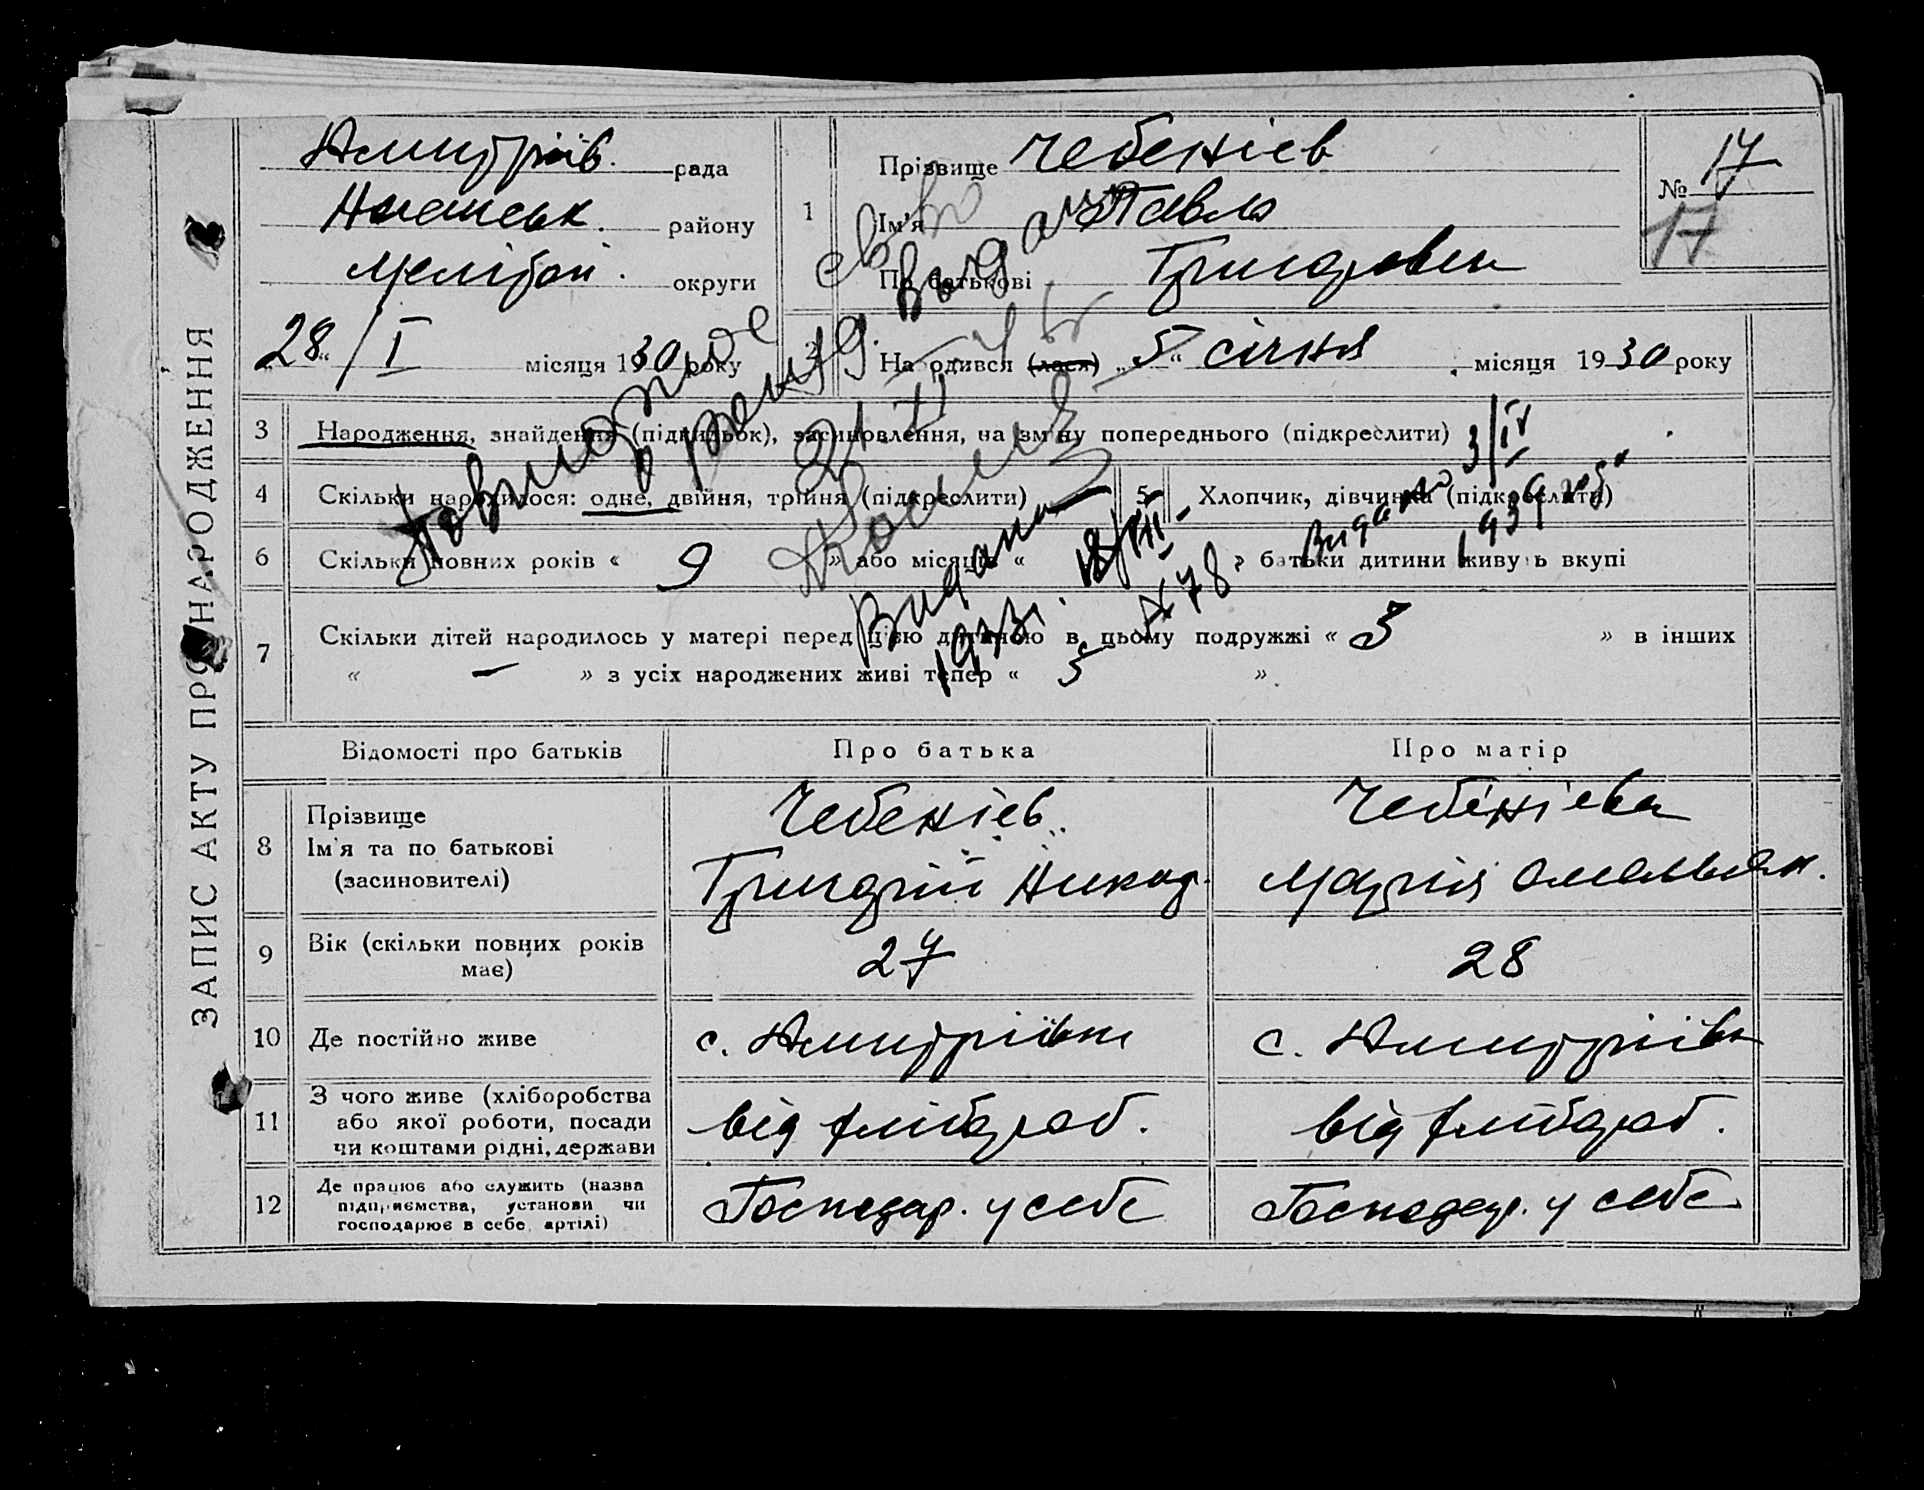 ЗАПИС АКТУ ПРО НАРОДЖЕННЯ
Дмитріїв. рада
району
Меліто́п. округи
28 / I місяця 1930 року
1
Прізвище Чебеніев
Ім'я Павло
По батькові Григорович
№ 17
17
2 На родився (лася) „5“ січня місяця 1930 року
3 Народження, знайдення (підкидьок), засиновлення, на зміну попереднього (підкреслити)
4 Скільки народилося: одне, двійня, трійня (підкреслити)
5 Хлопчик, дівчинка (підкреслити)
6 Скільки повних років « 9 » або місяців « » батьки дитини живуть вкупі
7 Скільки дітей народилось у матері перед цією дитиною в цьому подружжі « 5 » в інших
« — » з усіх народжених живі тепер « 5 »
Повторное
св-во
выдано
21.II
Видано 3/IV
1939
Видана
18/VIII
№ 78
Відомості про батьків Про батька Про матір
8 Прізвище
Ім'я та по батькові
(засиновителі)
Чебеніев
Григорій Никиф.
Чебеніева
Марія Омельян.
9 Вік (скільки повних років
має)
27
28
10 Де постійно живе
с. Дмитріівка
с. Дмитріівка
11 З чого живе (хліборобства
або якої роботи, посади
чи коштами рідні, держави
від хлібороб.
від хлібороб.
12 Де працює або служить (назва
підприємства, установи чи
господарює в себе, артілі)
Господар. у себе
Господар. у себе